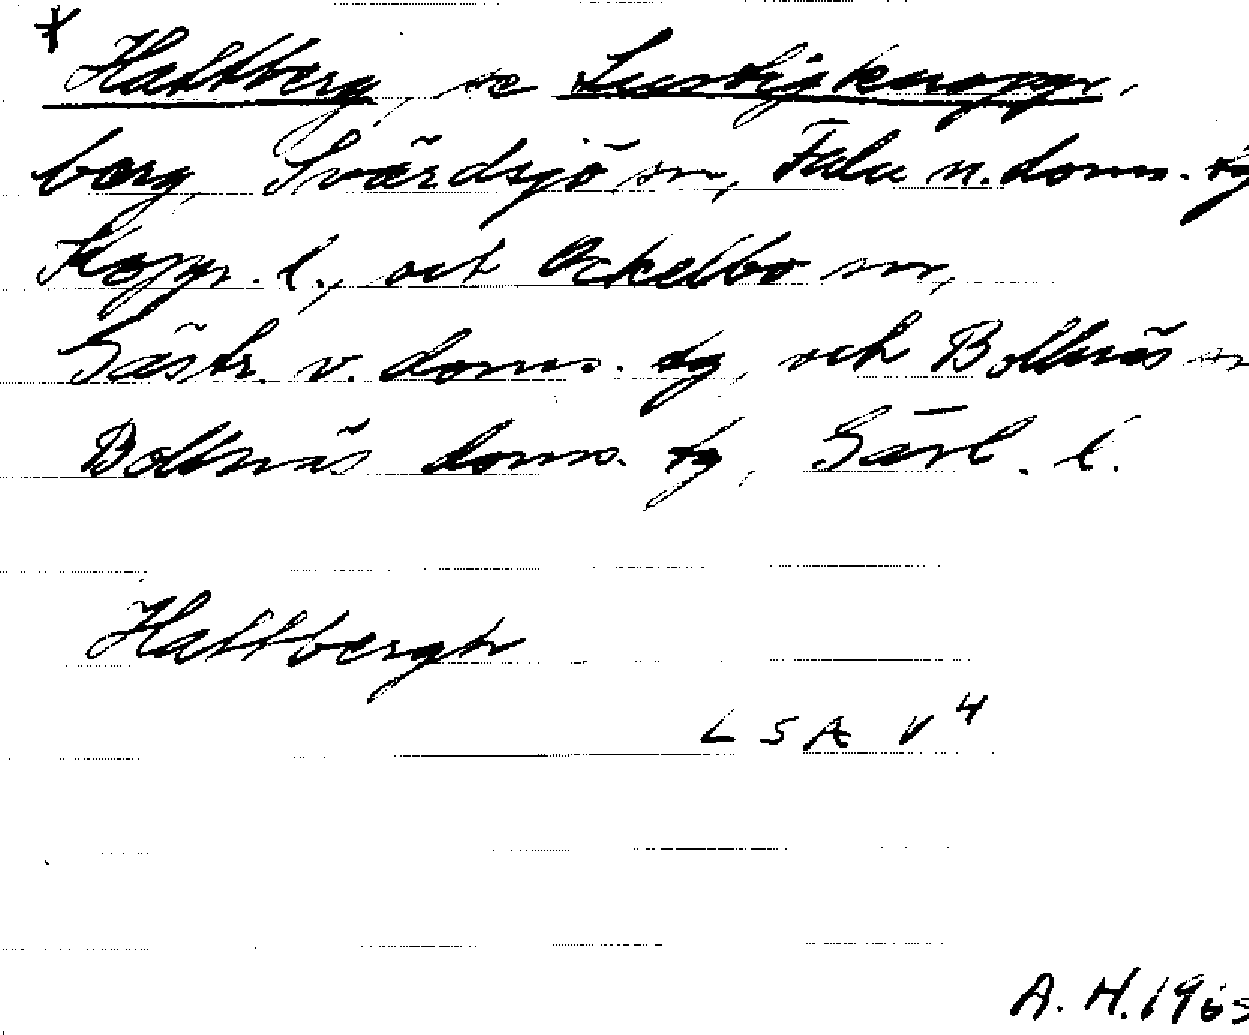 * Hattberg, se Lustigknopp-
berg, Svärdsjö sn, Falu n. doms. tg
Kopp. l., och Ockelbo sn,
Gästr. v. doms. tg, och Bollnäs sn
Bollnäs doms. tg, Gävl. l.
Hattbergh
LSA V4
A. H. 1965